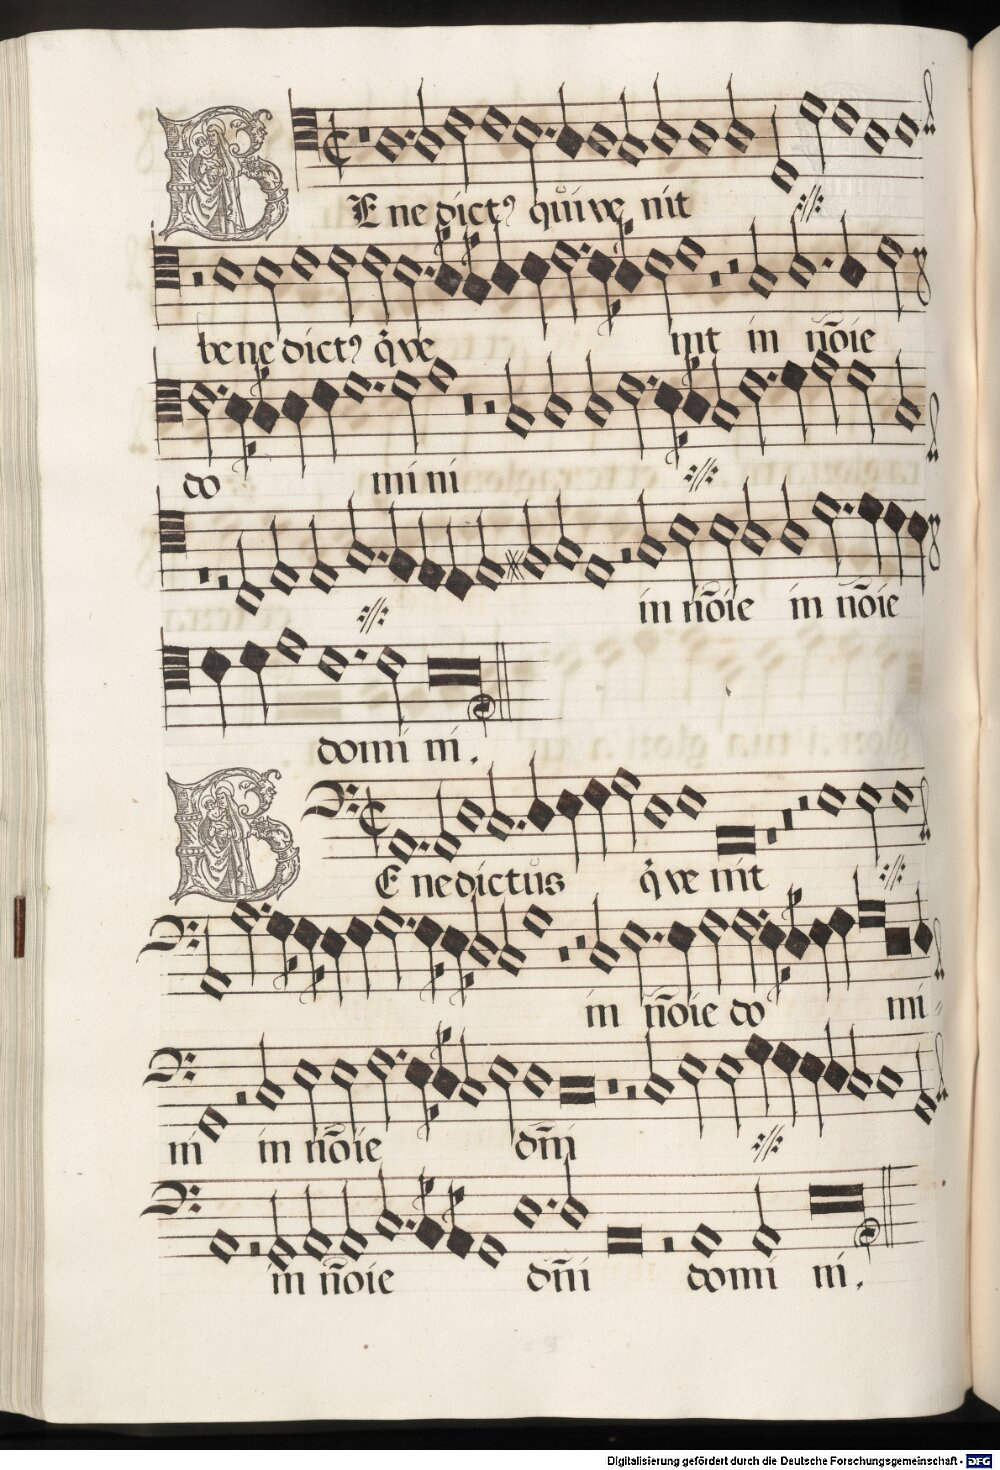 BEnedictꝰ qui ve nit
benedictꝰ q̊ve nit in nōie
do mini
in nōie in nōie
domi ni.
BEnedictus q̊ve nit
in nōie do mi
ni in nōie dn̄i
in nōie dn̄i domi ni.
Digitalisierung gefördert durch die Deutsche Forschungsgemeinschaft - DFG